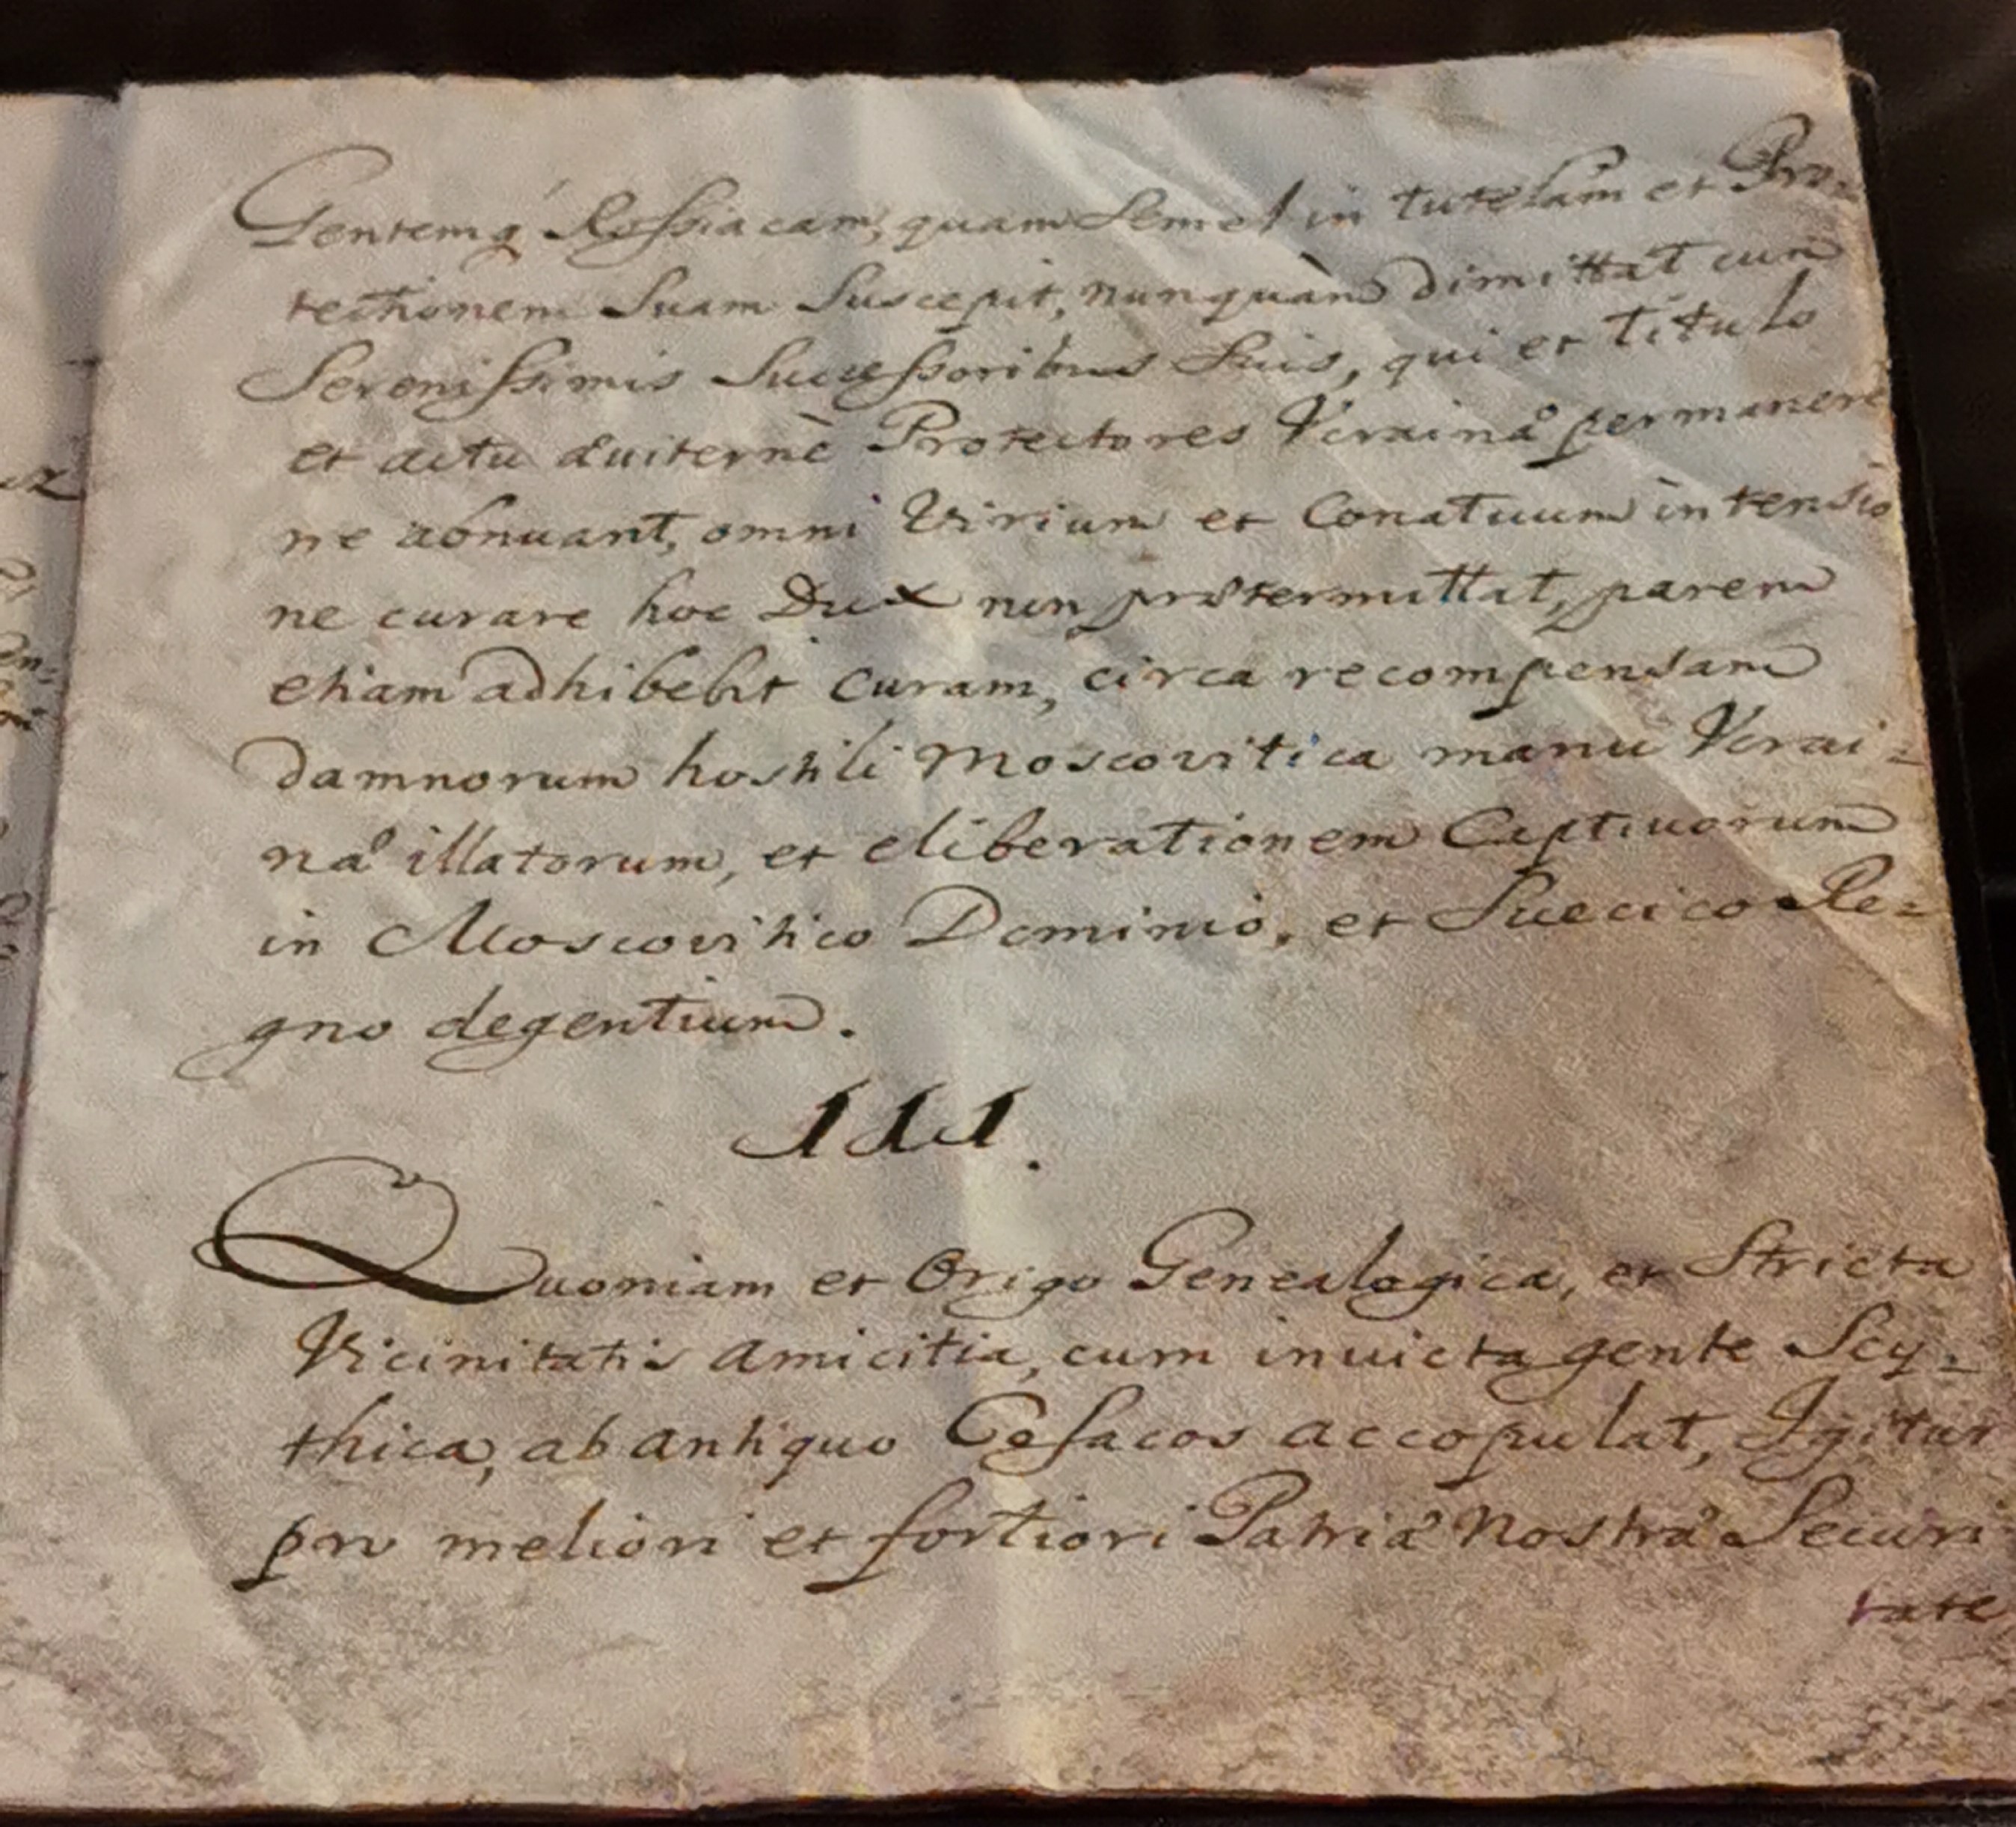 Gentemq́ Rossiacam, quam Semel in tutelam et Pro-
tectionem Suam Suscepit, nunquàm dimittat cum
Serenissimis Successoribus Suis, qui et titulo
et actu æuiternè Protectores Ucrainæ permanere
ne abnuant, omni Virium et Conatuum intensio
ne curare hoc Dux non prætermittat, parem
etiam adhibebit curam, circa recompensam
damnorum hostili Moscovitica manu Ucrai-
næ illatorum, et eliberationem Captiuorum
in Moscovitico Dominio, et Suecico Re-
gno degentium.
III.
Quoniam et Origo Genealogica, et Stricta
Vicinitatis amicitia, cum inuicta gente Scy-
thica, ab antiquo Cosacos accopulat, Igitur
pro meliori et fortiori Patriæ Nostræ Securi
tate